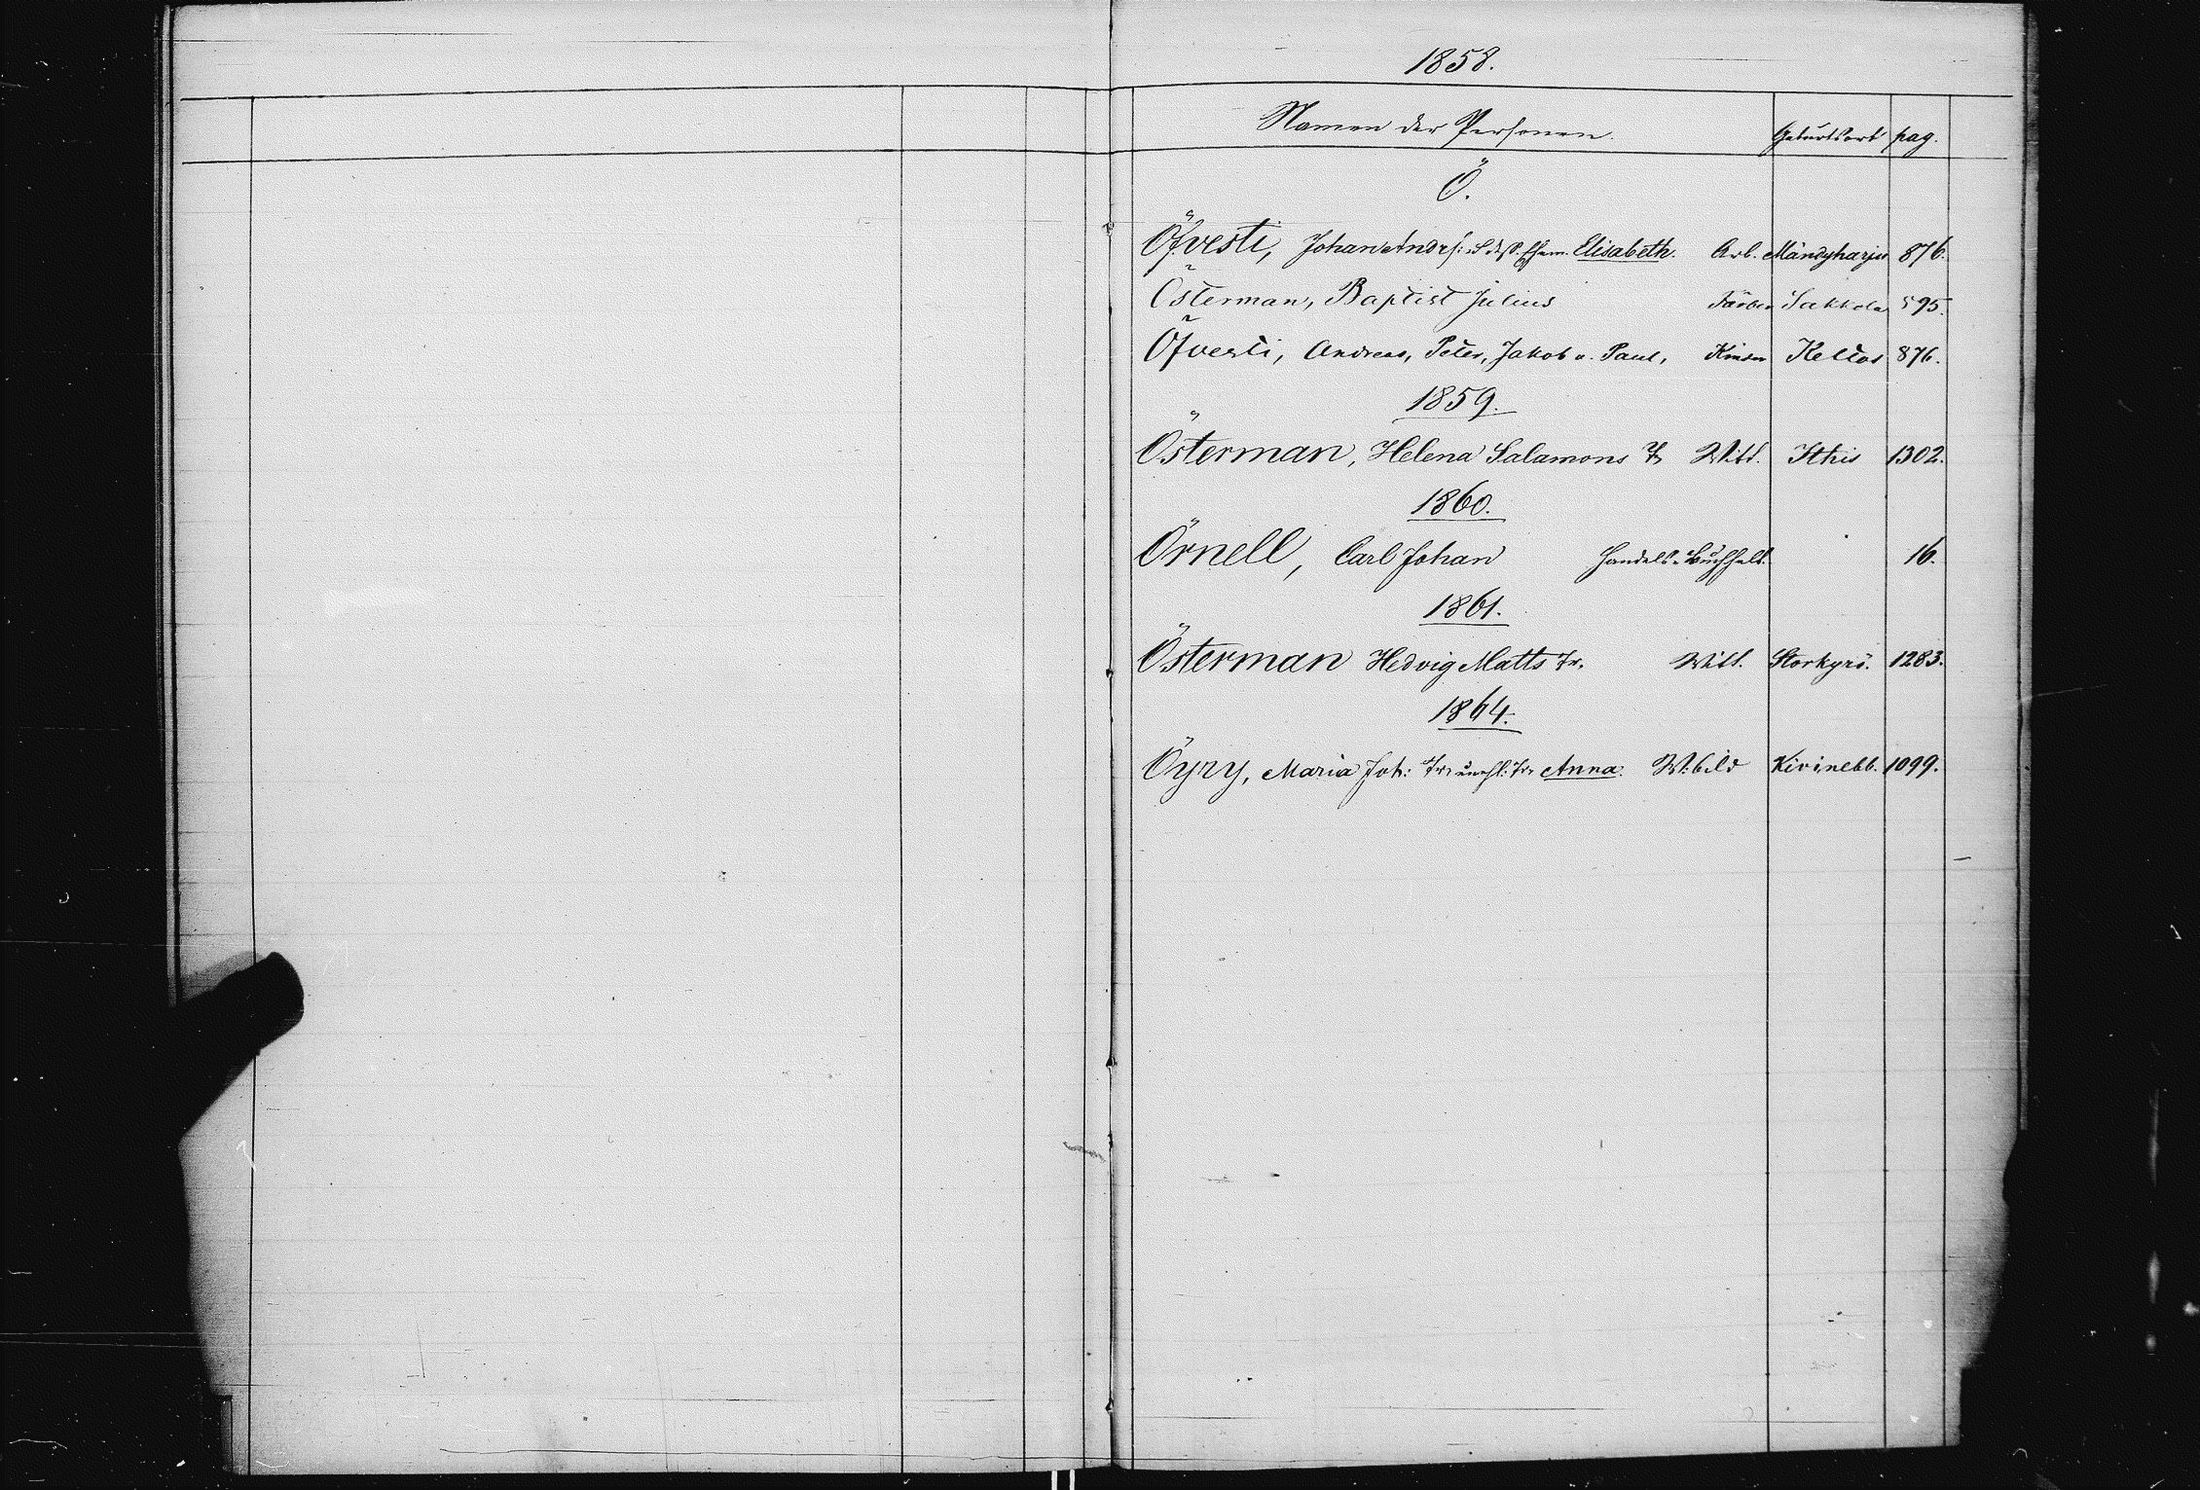 1858.
Namen der Personen. Geburtsort pag.
Ö.
Öfvesti, Johan Andrs: u. dess. Ehew. Elisabeth. Arb. Mändyharju 876.
Österman, Baptist Julius Färber Sakkola 595.
Öfvesti, Andreas, Peter, Jakob u. Paul, Kinder Keltos 876.
1859.
Österman, Helena Salamons Tr Witt. Ithis 1302.
1860.
Örnell, Carl Johan Handels-Buchhalt. 16.
1861.
Österman Hedvig Matts Tr. Witt. Storkyrö. 1283.
1864.
Öyry, Maria Joh: Tr. unehl: Tr. Anna. W.bild Kivinebb. 1099.